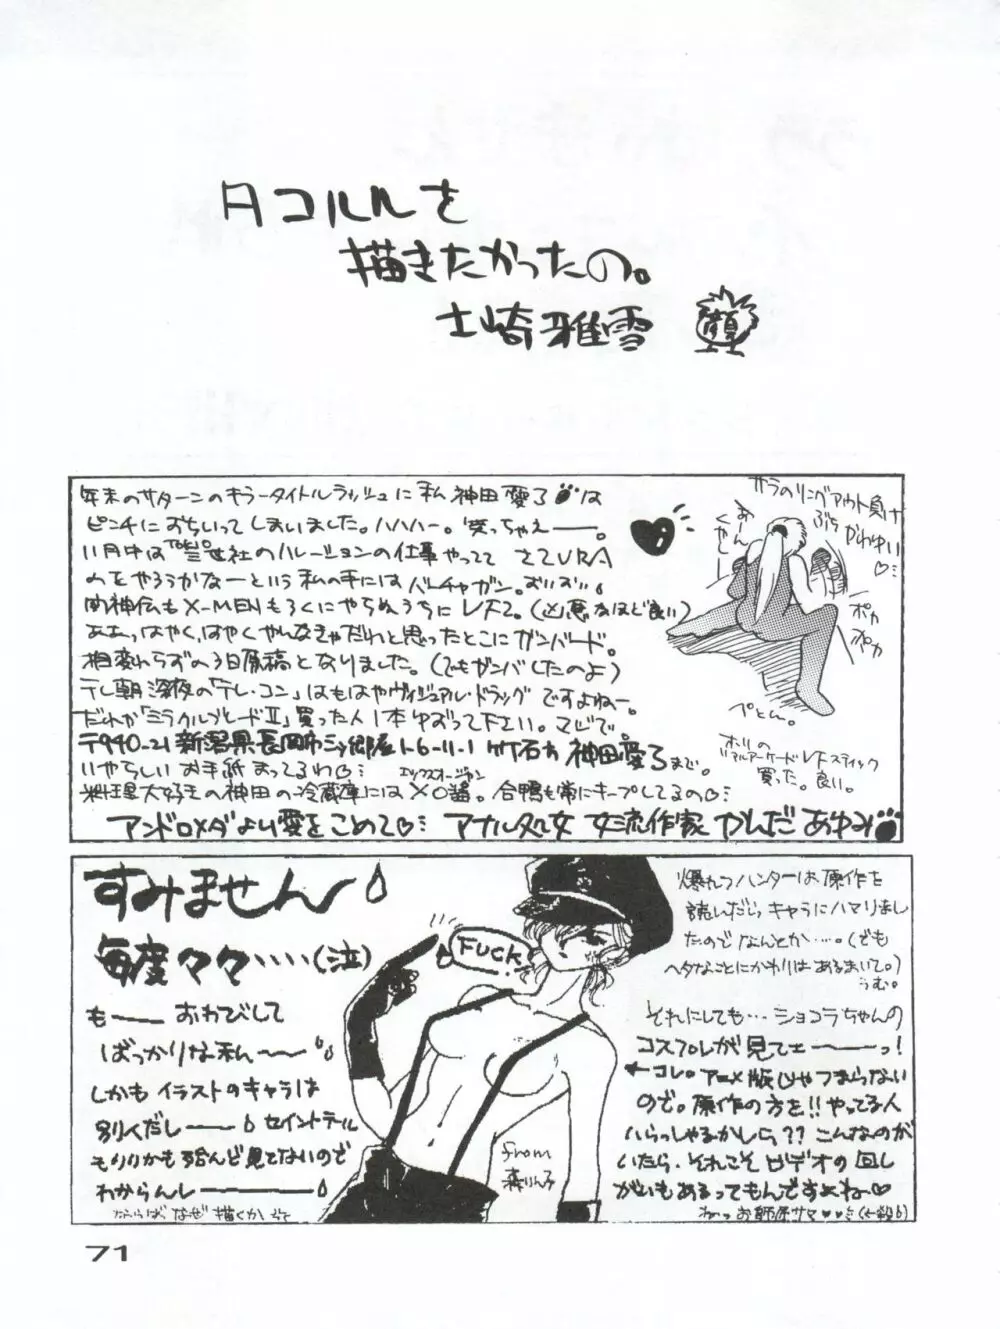 タコルルを
描きたかったの。
土崎雅雪 顔
年末のサターンのキラータイトルラッシュに私 神田愛了は
ピンチにおちいってしまいました。ハハハー。笑っちゃえ――。
11月中は 社のハレーションの仕事やってて さてURA
のをやろうかなーという私の手にはバーチャガン。おいおい
闘神伝もX-MENもろくにやらぬうちにVF2。(凶悪なほど良い)
あぁっはやく、はやくやんなきゃだわと思ったとこにガンバード。
相変わらずの3日原稿となりました。(でもガンバしたのよ)
テレ朝深夜の「テレ・コン」はもはやヴィジュアル・ドラッグですよねー
だれか「ミラクルブレードII」買った人1本ゆずって下さい。マジで。
〒940-21 新潟県長岡市 1-6-11-1 竹石方 神田愛了まで。
いやらしいお手紙まってるわ♡
エックスオージャン
料理大好きの神田の冷蔵庫にはXO醤。合鴨も常にキープしてるの♡
アンドロメダより愛をこめて♡ アナル処女 女流作家 かんだあゆみ
サラのリングアウト負け
ぶち かわゆい
♡
あーん
くやしー
ポカ
ポカ
ぺとん。
ホリの
リアルアーケードVFスティック
買った。良い。
すみません
毎度々々・・・・(泣)
も―― おわびして
ばっかりな私――
しかもイラストのキャラは
別人だし―― セイントテール
もりりかも殆んど見てないので
わからんし――
ならばなぜ描くか って
FUCK
from
森りん子
爆れつハンターは、原作を
読んだらキャラにハマりまし
たのでなんとか…。(でも
ヘタなことにかわりはあるまいて。)
うむ。
それにしても… ショコラちゃんの
コスプレが見てェ――っ!
←コレ。アニメ版じゃつまらない
ので。原作の方を!!やってる人
いらっしゃるかしら??こんなのが
いたら、それこそビデオの回し
がいもあるってもんですよね♡
ねっお師匠サマ♥♥
71